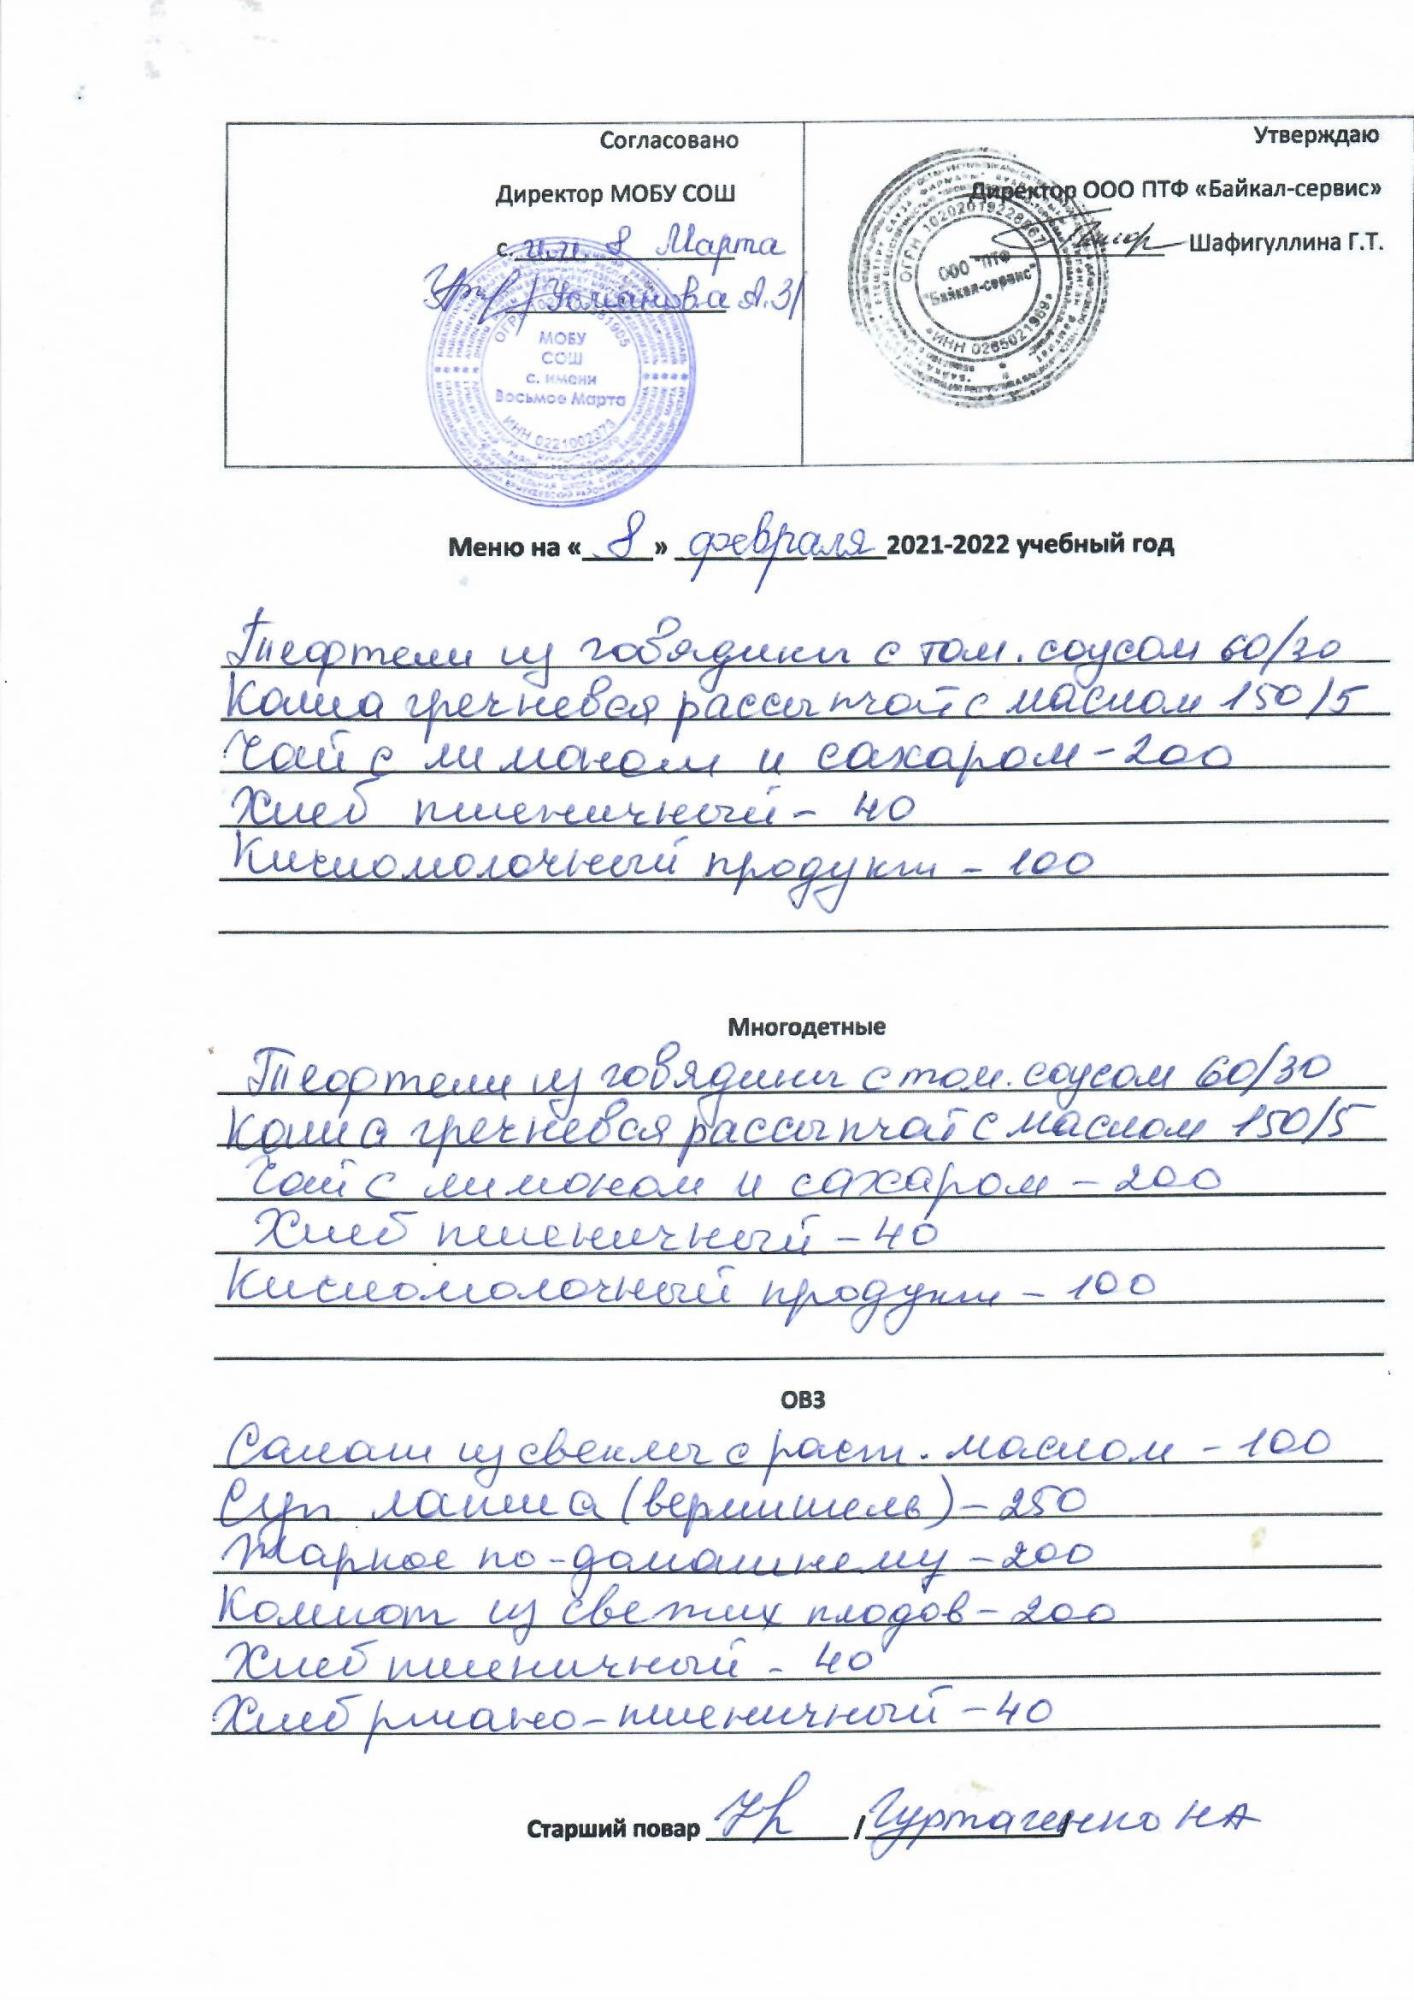 Согласовано
Директор МОБУ СОШ
с. им. 8 Марта
/Усманова А.З/
МОБУ
СОШ
с. имени
Восьмое Марта
ИНН 0221002373
Утверждаю
Директор ООО ПТФ «Байкал-сервис»
Шафигуллина Г.Т.
ООО "ПТФ
"Байкал-сервис"
Меню на «8» февраля 2021-2022 учебный год
Тефтели из говядины с том. соусом 60/30
Каша гречневая рассыпчат с маслом 150/5
Чай с лимоном и сахаром - 200
Хлеб пшеничный - 40
Кисломолочный продукт - 100
Многодетные
Тефтели из говядины с том. соусом 60/30
Каша гречневая рассыпчат с маслом 150/5
Чай с лимоном и сахаром - 200
Хлеб пшеничный - 40
Кисломолочный продукт - 100
ОВЗ
Салат из свеклы с раст. маслом - 100
Суп лапша (вермишель) - 250
Жаркое по-домашнему - 200
Компот из свежих плодов - 200
Хлеб пшеничный - 40
Хлеб ржано-пшеничный - 40
Старший повар / НА